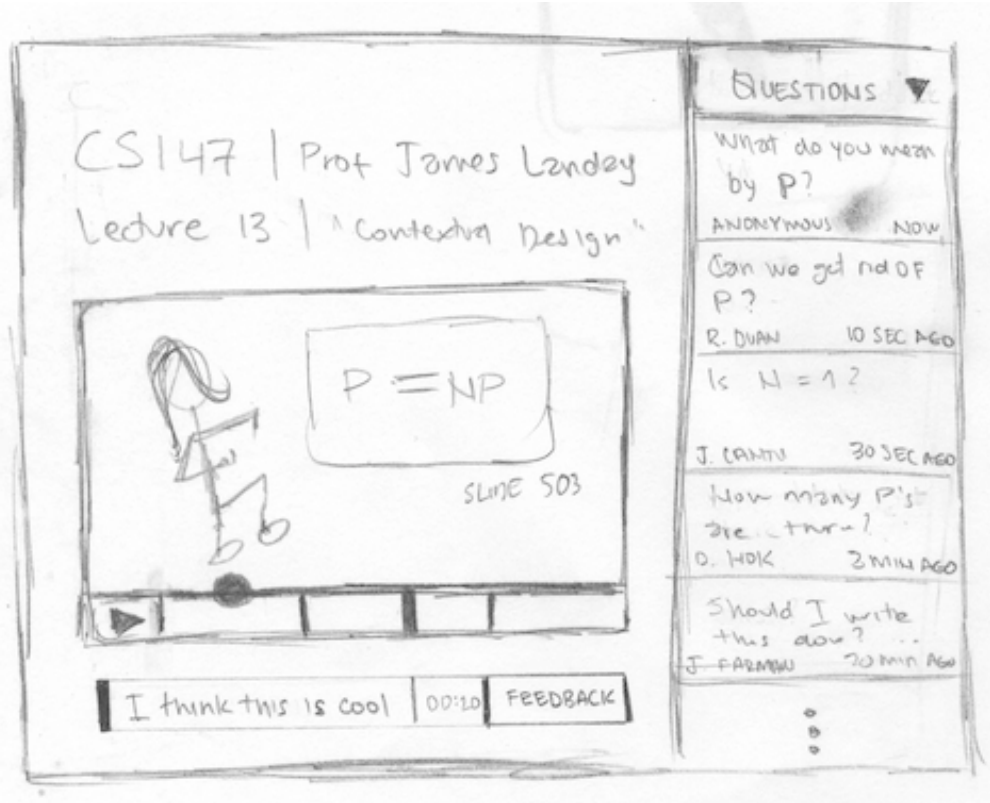 CS147 | Prof James Landay
Lecture 13 | "Contextual Design"
P = NP
SLIDE 503
I think this is cool
00:20
FEEDBACK
QUESTIONS
What do you mean
by P?
ANONYMOUS NOW
Can we get rid OF
P?
R. DUAN 10 SEC AGO
Is N = 1?
J. CANTU 30 SEC AGO
How many P's
are there?
D. HOK 2 MIN AGO
Should I write
this down? ...
J. FARMAN 20 min AGO